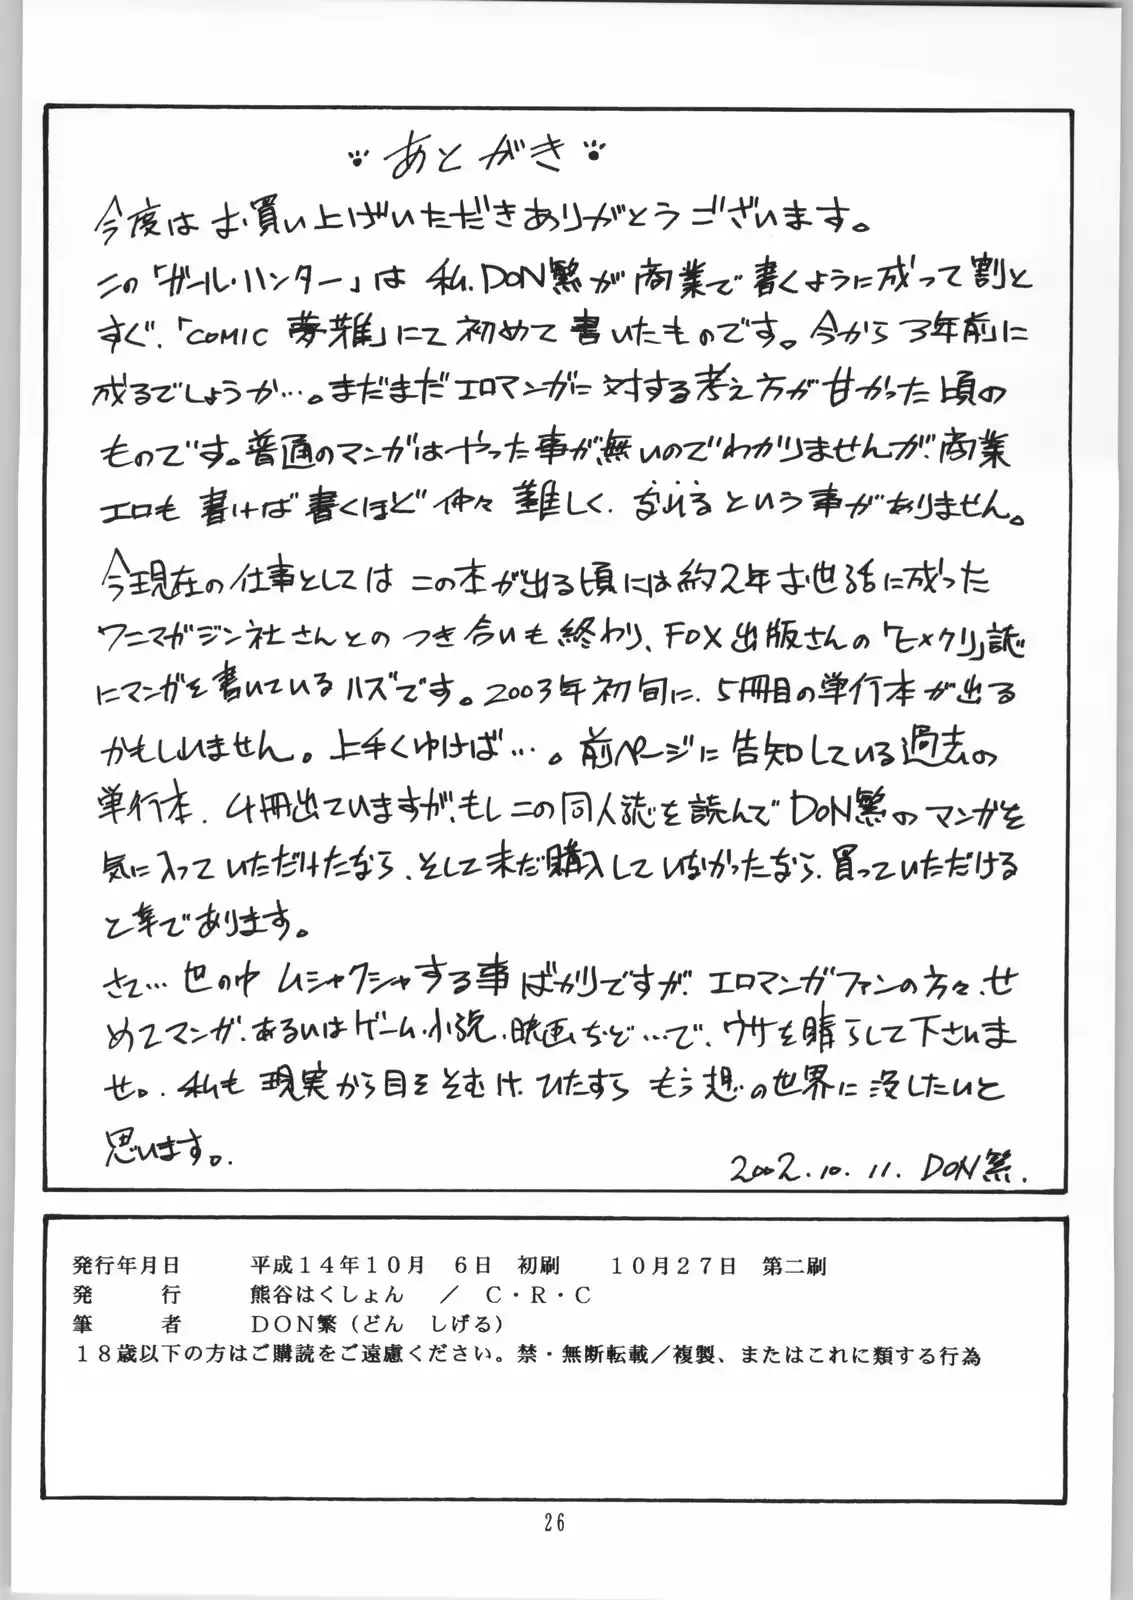 あとがき
今度はお買い上げいただきありがとうございます。
この「ガール・ハンター」は私、DON繁が商業で書くように成って割と
すぐ、「COMIC 夢雅」にて初めて書いたものです。今から3年前に
成るでしょうか…。まだまだエロマンガに対する考え方が甘かった頃の
ものです。普通のマンガはやった事が無いのでわかりませんが、商業
エロも書けば書くほど仲々難しく、なれるという事がありません。
今現在の仕事としてはこの本が出る頃には約2年お世話に成った
ワニマガジン社さんとのつき合いも終わり、FOX出版さんの「ヒメクリ」誌
にマンガを書いているハズです。2003年初旬に、5冊目の単行本が出る
かもしれません。上手くゆけば…。前ページに告知している過去の
単行本、4冊出ていますが、もしこの同人誌を読んでDON繁のマンガを
気に入っていただけたなら、そして未だ購入していなかったなら、買っていただける
と幸であります。
さて…世の中ムシャクシャする事ばかりですが、エロマンガファンの方々、せ
めてマンガ、あるいはゲーム、小説、映画など…で、ウサを晴らして下さいま
せ。私も現実から目をそむけ、ひたすらもう想の世界に没したいと
思います。
2002.10.11. DON繁.
発行年月日　平成14年10月　6日　初刷　10月27日　第二刷
発　行　熊谷はくしょん　／　C・R・C
筆　者　DON繁（どん　しげる）
18歳以下の方はご購読をご遠慮ください。禁・無断転載／複製、またはこれに類する行為
26